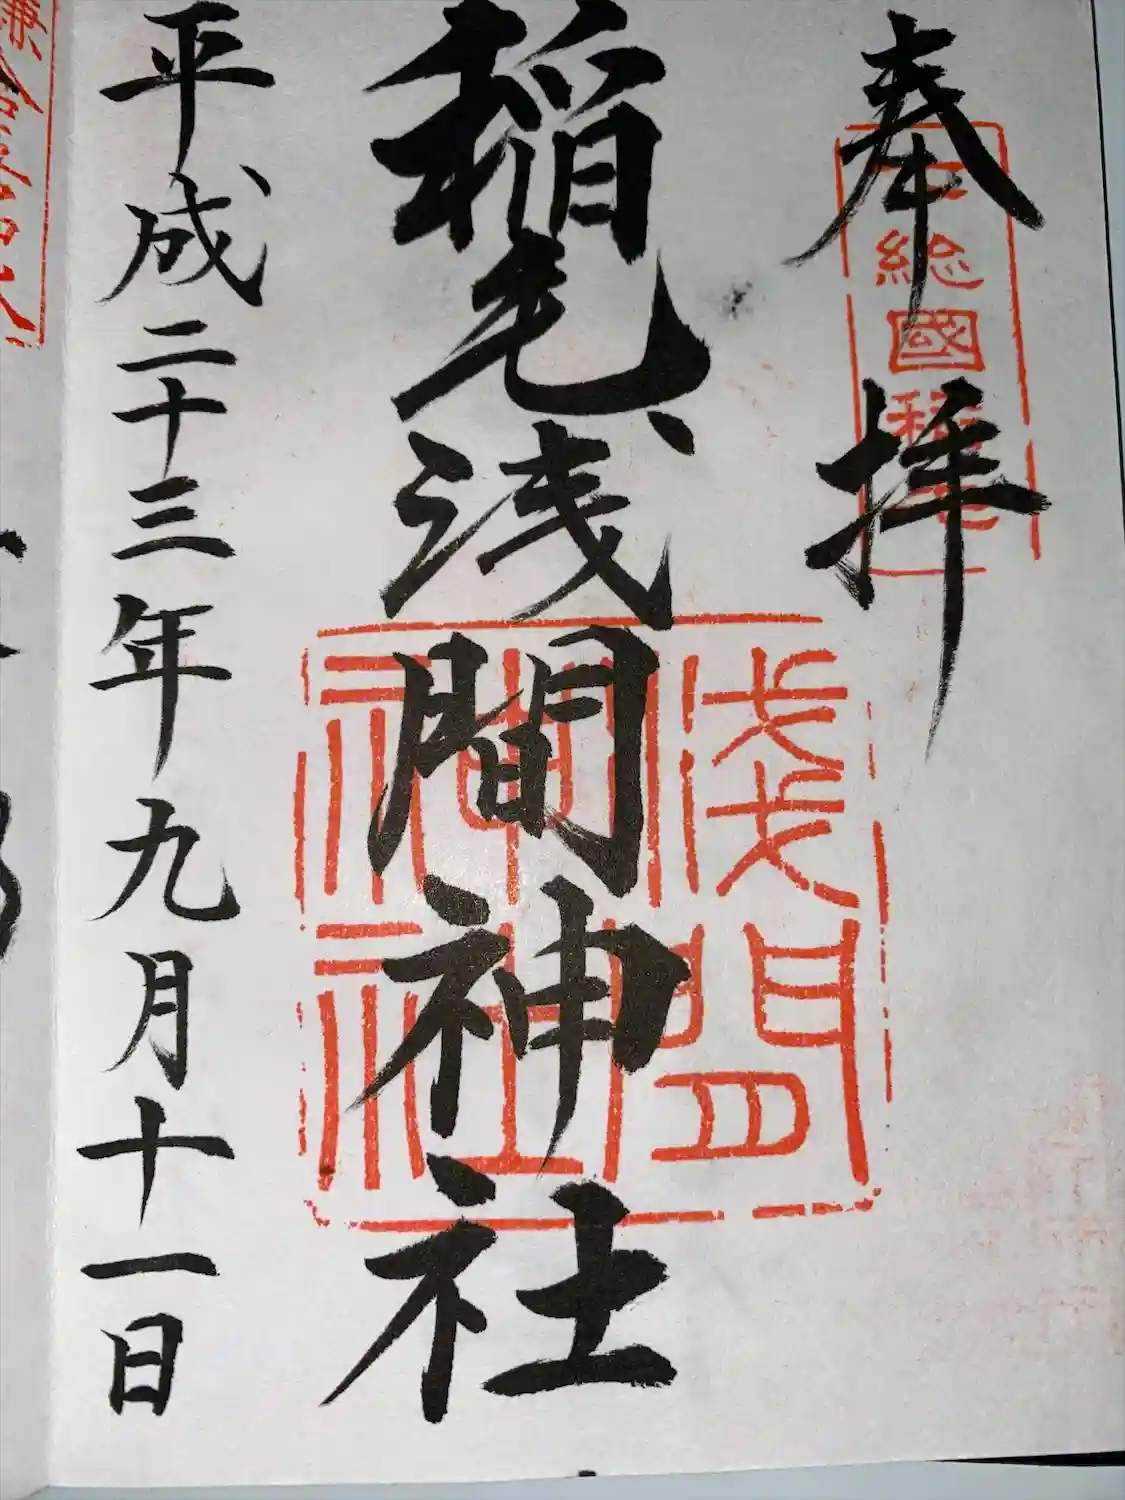 奉拝
下総國稲毛
稲毛浅間神社
浅間
神社
平成二十三年九月十一日